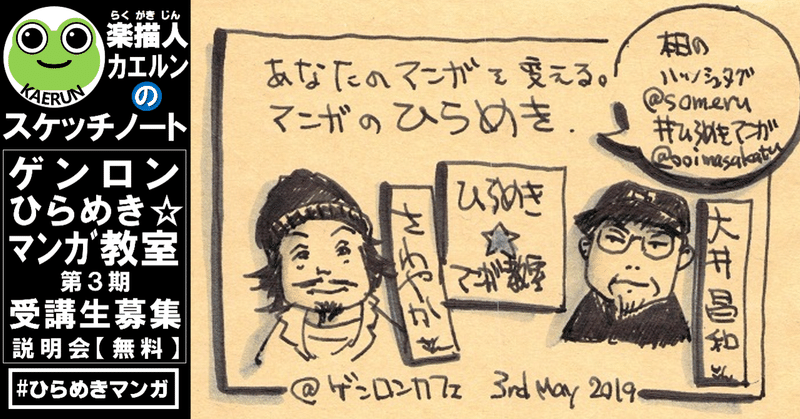 らくがきじん
楽描人
カエルン
の
KAERUN
スケッチノート
ゲンロン
ひらめき☆
マンガ教室
第3期
受講生募集
説明会【無料】
#ひらめきマンガ
あなたのマンガを変える。
マンガのひらめき.
ハッシュタグ
@someru
#ひらめきマンガ
@ooimasakazu
さわやか
ひらめき
☆
マンガ教室
大井昌和
@ゲンロンカフェ 3rd May 2019